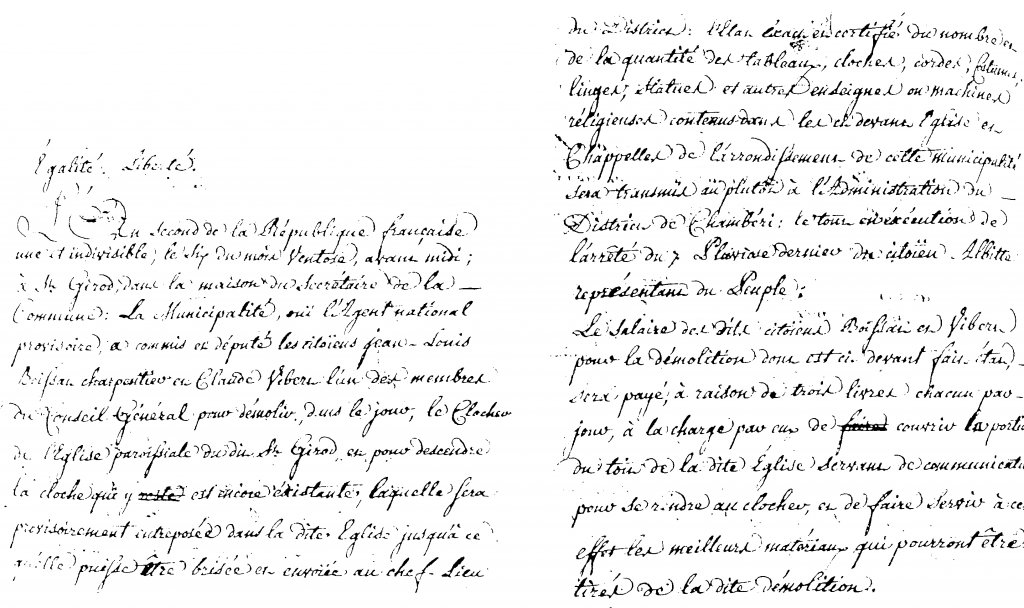 Égalité. Liberté.
L'an second de la République française
une et indivisible, le six du mois Ventose, avant midi;
à St Girod, dans la maison du Secrétaire de la
Commune: La Municipalité, ouï l'Agent national
provisoire, a commis et député les citoiens jean-Louis
Boissan charpentier et Claude Vibert l'un des membres
du Conseil Général pour démolir, dans le jour, le Clocher
de l'Eglise paroissiale du dit St Girod, et pour descendre
la cloche qui y reste est encore éxistante, laquelle sera
provisoirement entreposée dans la dite Eglise jusqu'à ce
qu'elle puisse être brisée et envoiée au chef-Lieu
du District: l'Etat éxact et certifié du nombre et
de la quantité des tableaux, cloches, cordes, Costumes,
linges, Statues et autres enseignes ou machines
réligieuses contenus dans les ci devant Eglise et
Chappelles de l'arrondissement de cette municipalité
sera transmis au plutôt à l'Administration du
District de Chambéri: le tout en éxécution de
l'arrêté du 7 Pluviose dernier du citoïen Albitte
représentant du Peuple:
Le salaire des dits citoiens Boissan et Vibert
pour la démolition dont est ci devant fait état,
sera payé, à raison de trois livres chacun par
jour, à la charge par eux de faire couvrir la portio
du toit de la dite Eglise servant de communicati
pour se rendre au clocher, et de faire servir à ce
effet les meilleurs materiaux qui pourront être
tirés de la dite démolition.